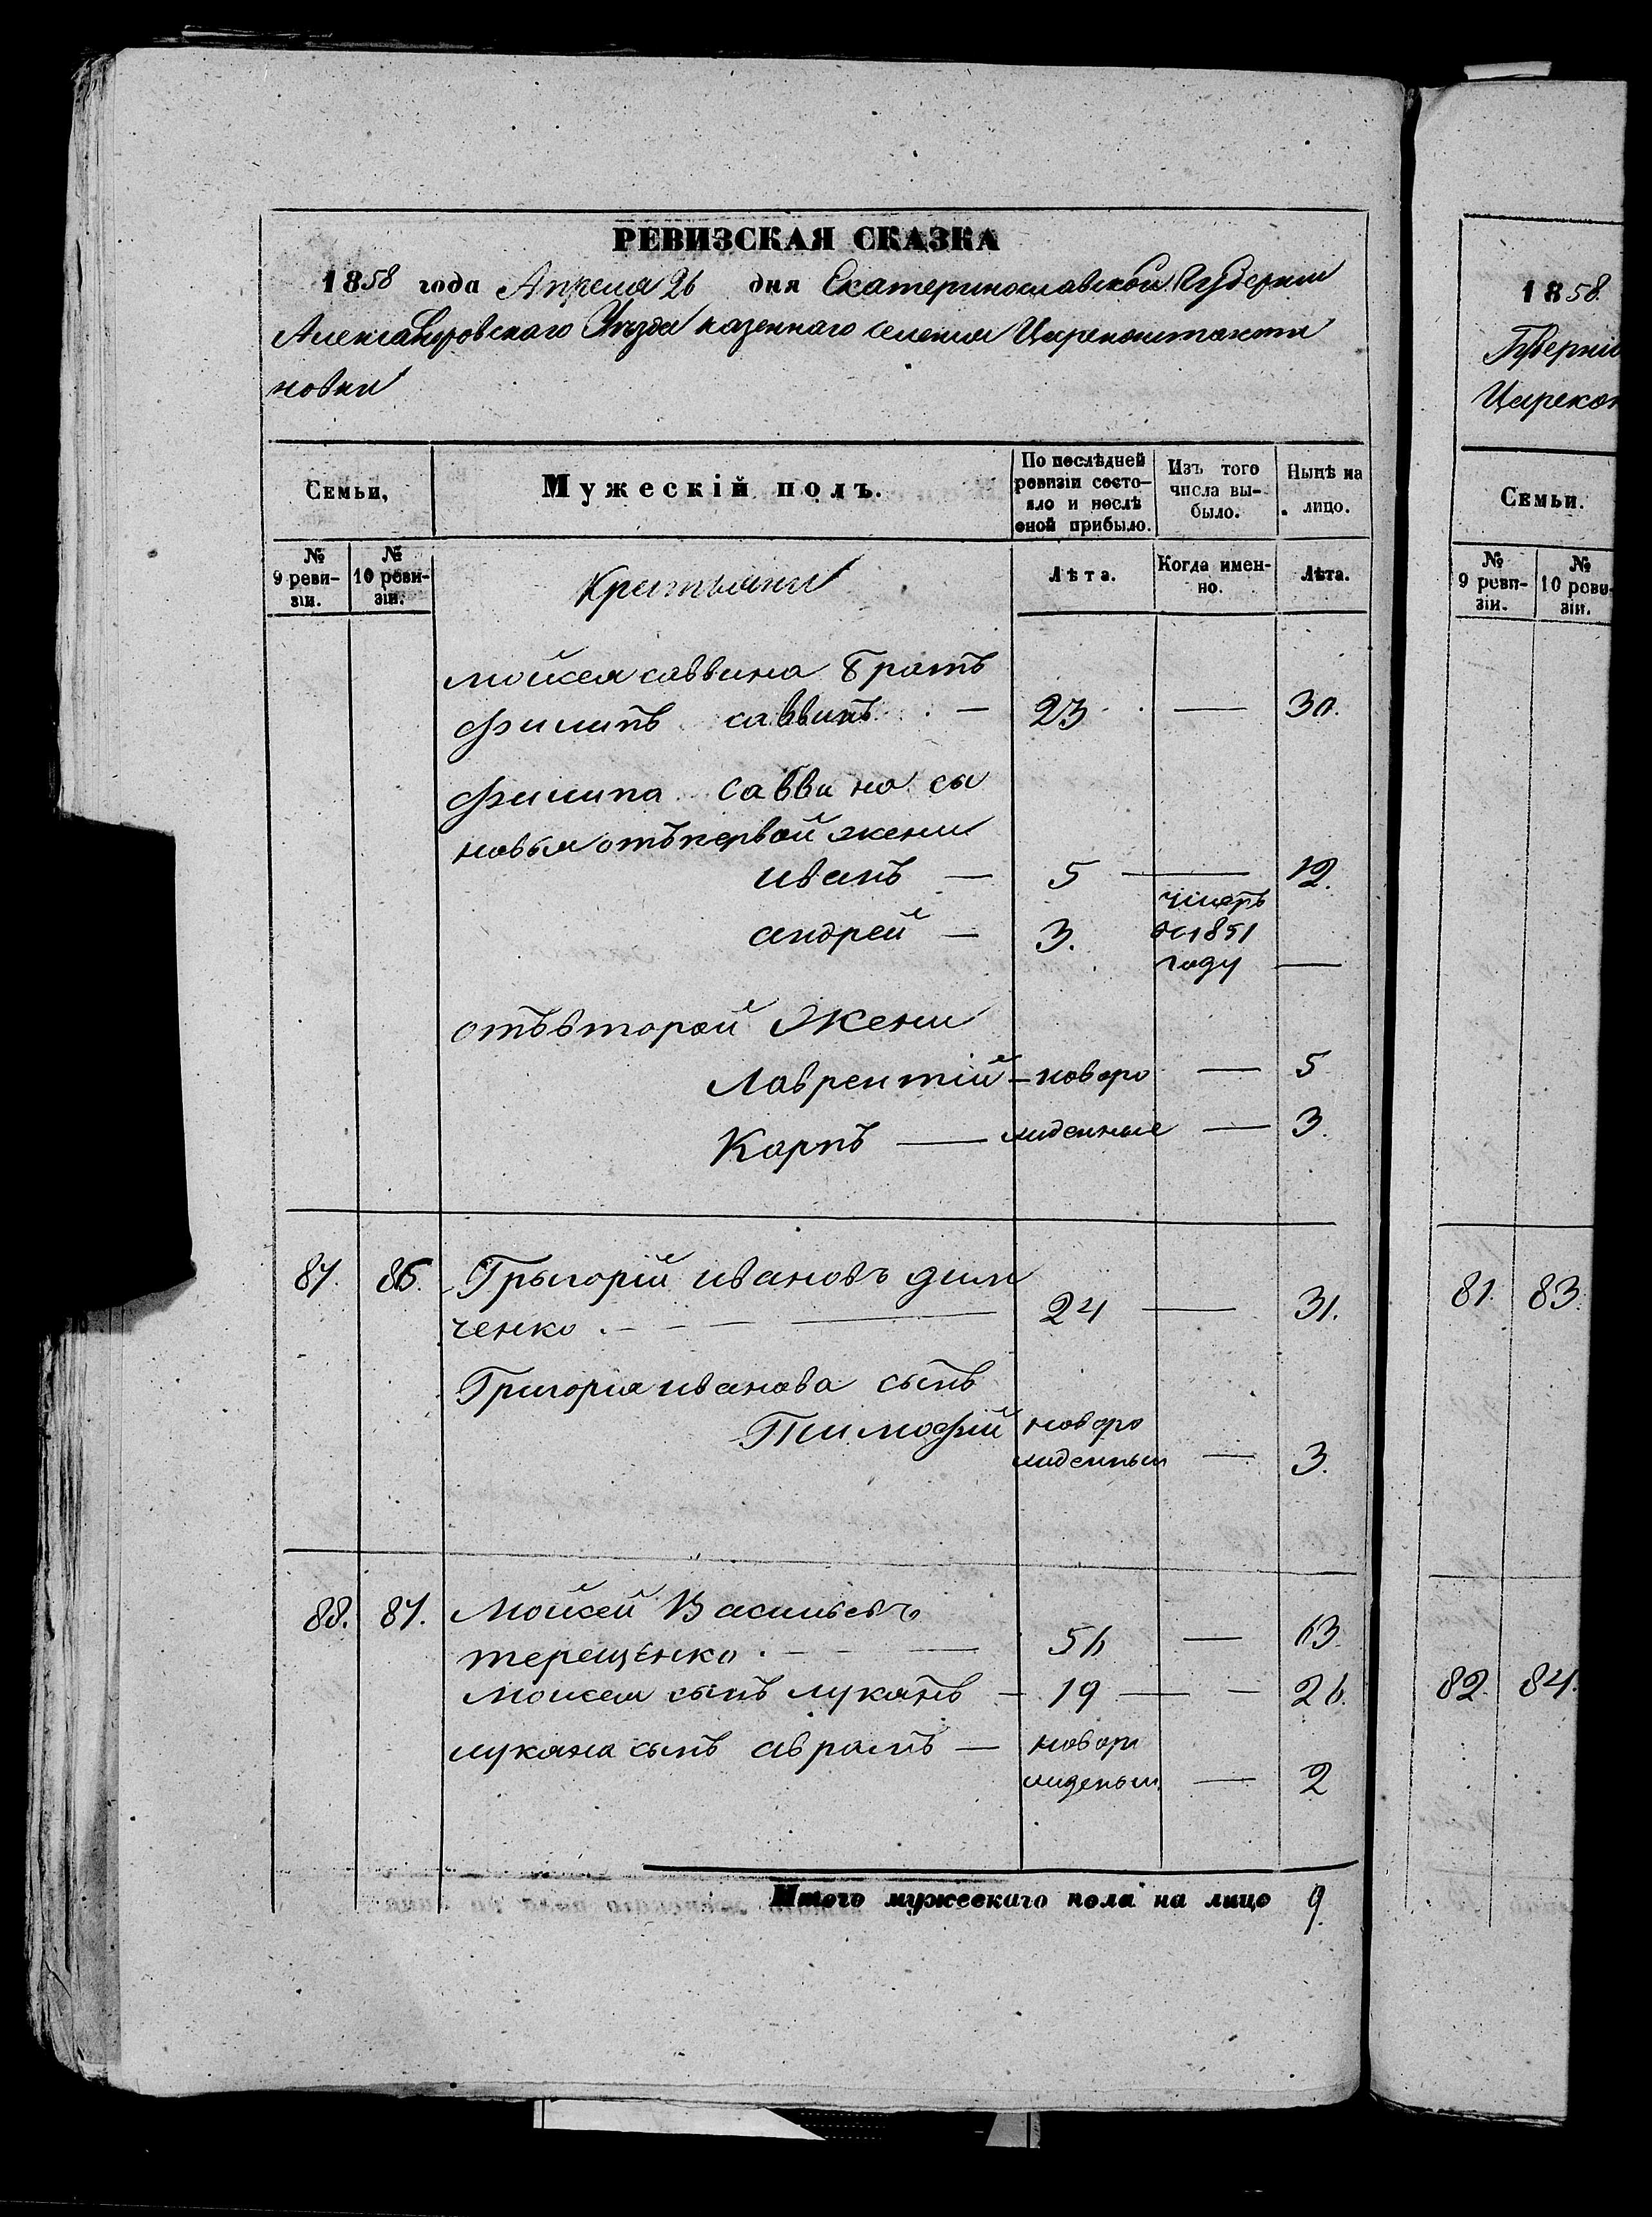 РЕВИЗСКАЯ СКАЗКА
1858 года Апреля 26 дня Екатеринославской Губернии
Александровского Уезда казенного селения Цареконстанти
новки
Семьи,
Мужескій полъ.
По послѣдней ревизіи состо-яло и послѣ оной прибыло.
Изъ того числа вы-было.
Нынѣ на лицо.
№ 9 реви-зіи.
№ 10 реви-зіи.
Крестьяни
Лѣта.
Когда имен-но.
Лѣта.
мойсея саввина братъ
филипъ саввинъ — 23 — 30.
филипа саввина сы
новья отъ первой жени
иванъ — 5 — 12.
андрей — 3. 1851 году —
отъ второй жени
Лаврентій — новоро — 5
Карпъ — жденные — 3.
87. 86. Грыгорій ивановъ дим
ченко. — 24 — 31.
Григория иванова сынъ
Тимофій новоро
жденный — 3.
88. 87. Мойсей Васильевъ
терещенко. — 56 — 63.
Мойсея сынъ луканъ — 19 — 26.
лукана сынъ аврамъ — новоро
жденый — 2
Итого мужескаго пола на лицо 9.
1858.
Губернии
Царекон
Семьи.
№ 9 реви-зіи.
№ 10 реви-зіи.
81. 83.
82. 84.